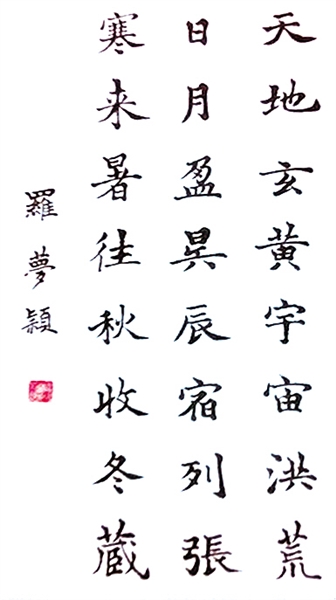 天地玄黃宇宙洪荒
日月盈昃辰宿列張
寒来暑往秋收冬蔵
羅夢穎